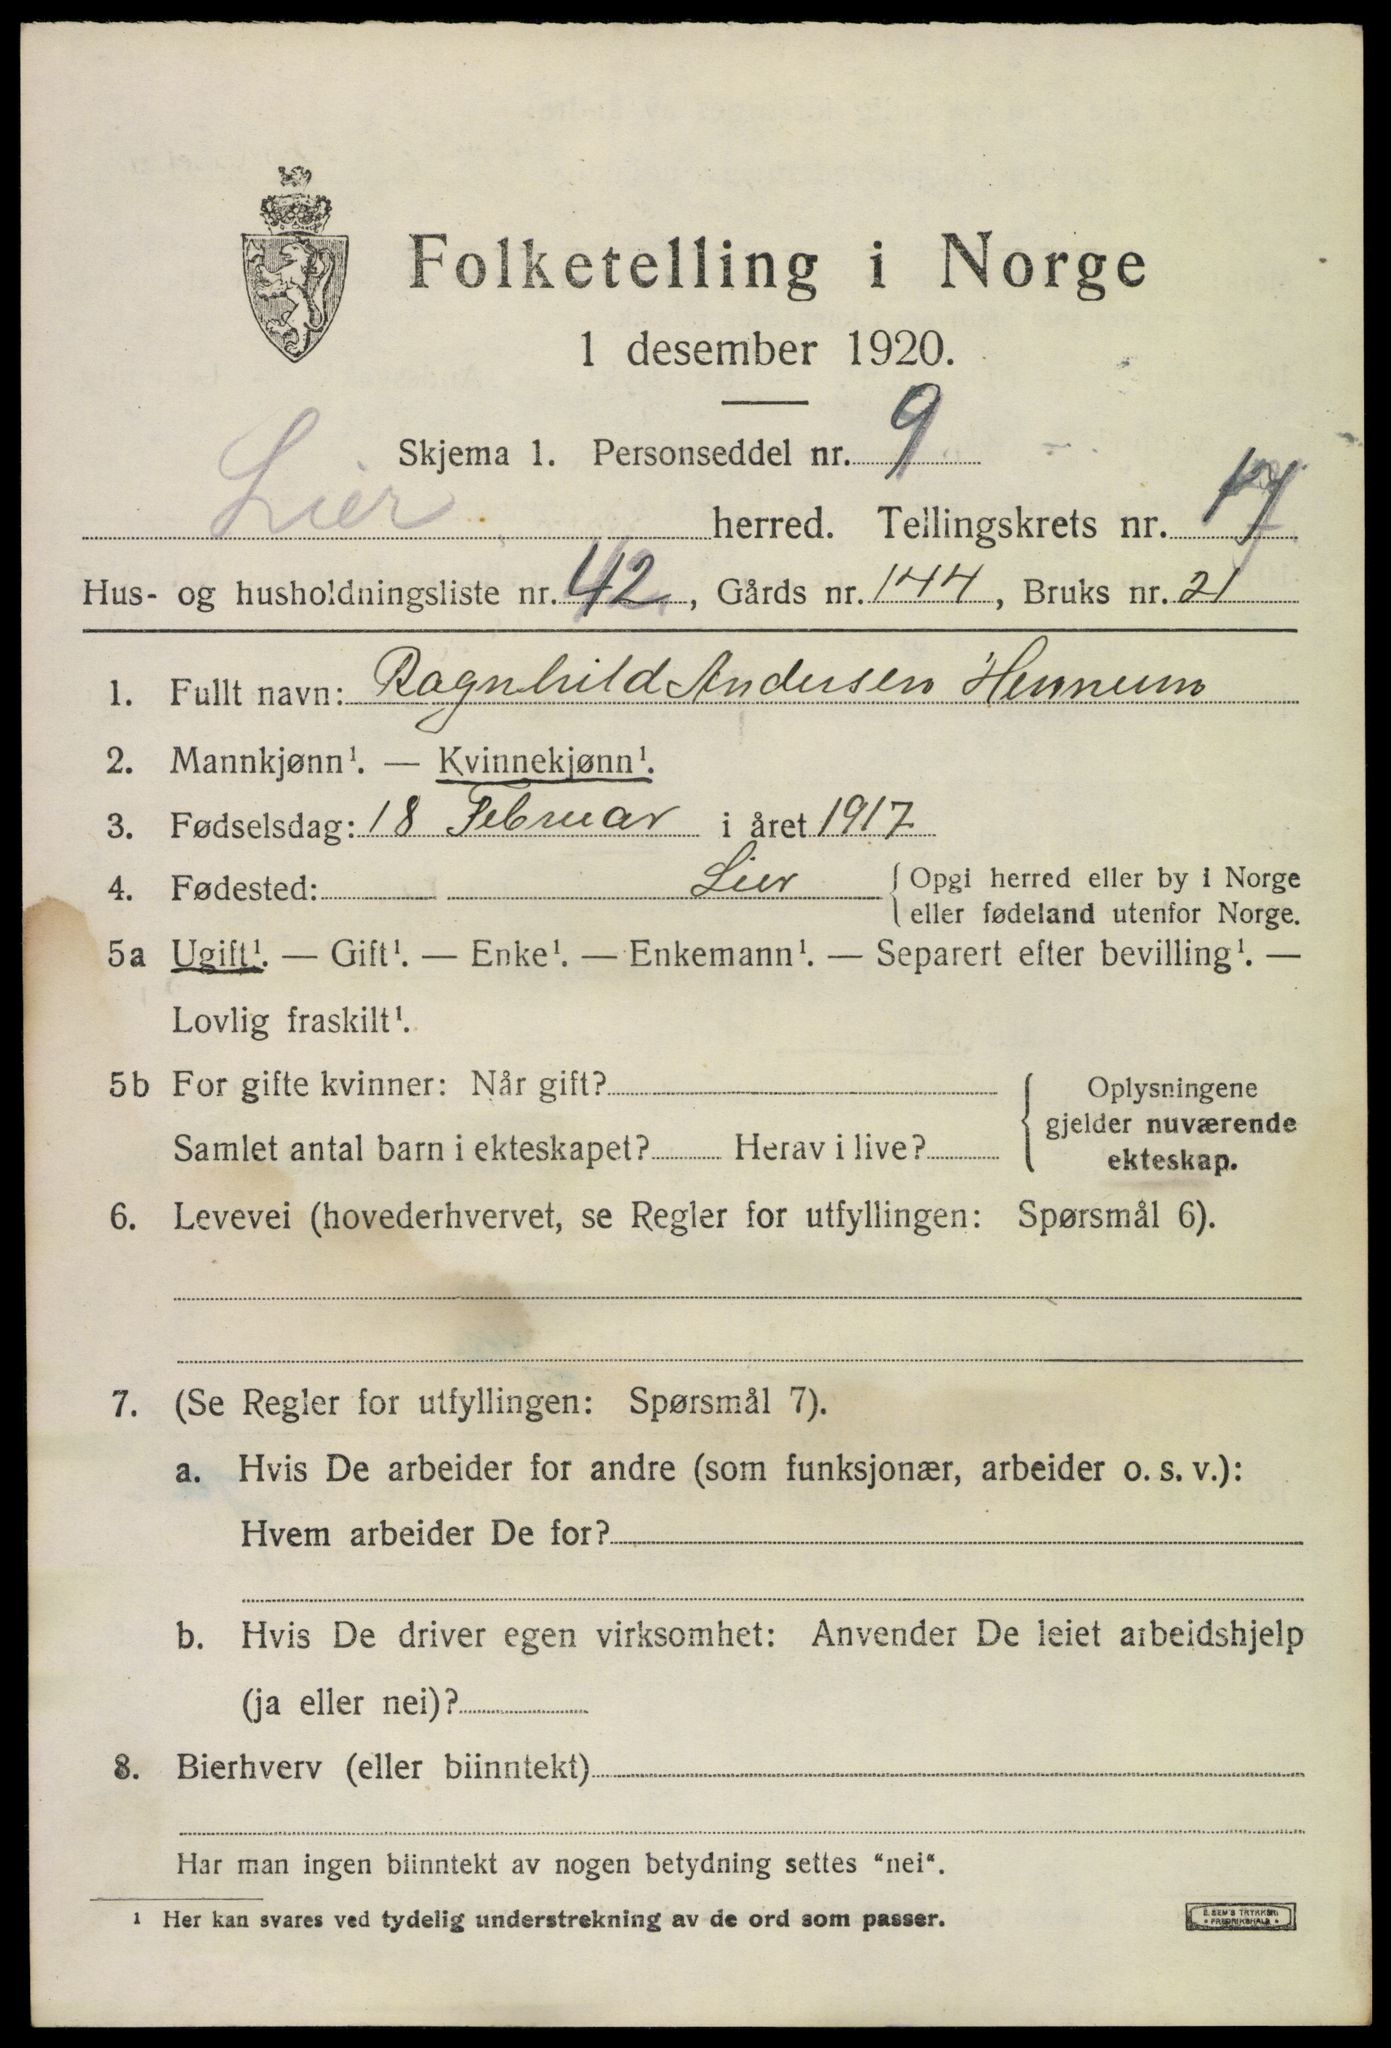 Folketelling i Norge
1 desember 1920.
Skjema 1. Personseddel nr. 9
Lier herred. Tellingskrets nr. 17
Hus- og husholdningsliste nr. 42, Gårds nr. 144, Bruks nr. 21
1. Fullt navn: Ragnhild Andersen Hennum
2. Mannkjønn¹. — Kvinnekjønn¹.
3. Fødselsdag: 18 Februar i året 1917
4. Fødested: Lier { Opgi herred eller by i Norge
eller fødeland utenfor Norge.
5a Ugift¹. — Gift¹. — Enke¹. — Enkemann¹. — Separert efter bevilling¹. —
Lovlig fraskilt¹.
5b For gifte kvinner: Når gift? { Oplysningene
gjelder nuværende
Samlet antal barn i ekteskapet? Herav i live?
ekteskap.
6. Levevei (hovederhvervet, se Regler for utfyllingen: Spørsmål 6).
7. (Se Regler for utfyllingen: Spørsmål 7).
a. Hvis De arbeider for andre (som funksjonær, arbeider o. s. v.):
Hvem arbeider De for?
b. Hvis De driver egen virksomhet: Anvender De leiet arbeidshjelp
(ja eller nei)?
8. Bierhverv (eller biinntekt)
Har man ingen biinntekt av nogen betydning settes “nei“.
¹ Her kan svares ved tydelig understrekning av de ord som passer.
E. SEM'S TRYKKERI
• FREDRIKSHALD •